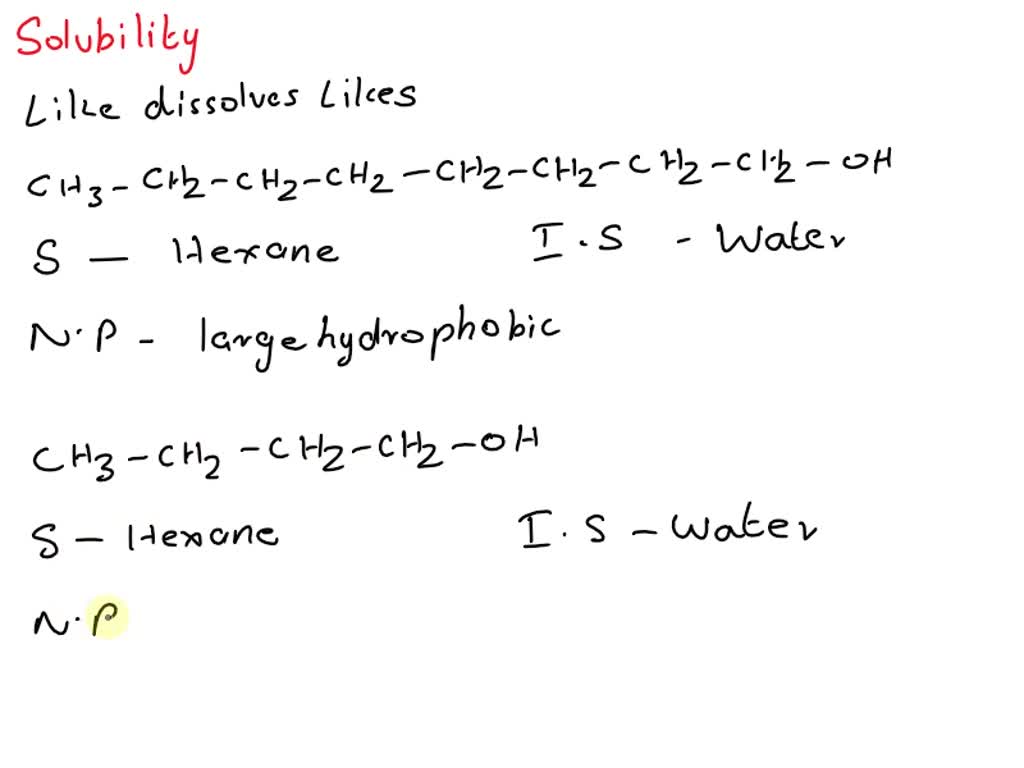 Solubility
Like dissolves Likes
CH3-CH2-CH2-CH2-CH2-CH2-CH2-CH2-OH
S - Hexane I.S - Water
N.P - large hydrophobic
CH3-CH2-CH2-CH2-OH
S - Hexane I.S - Water
N.P